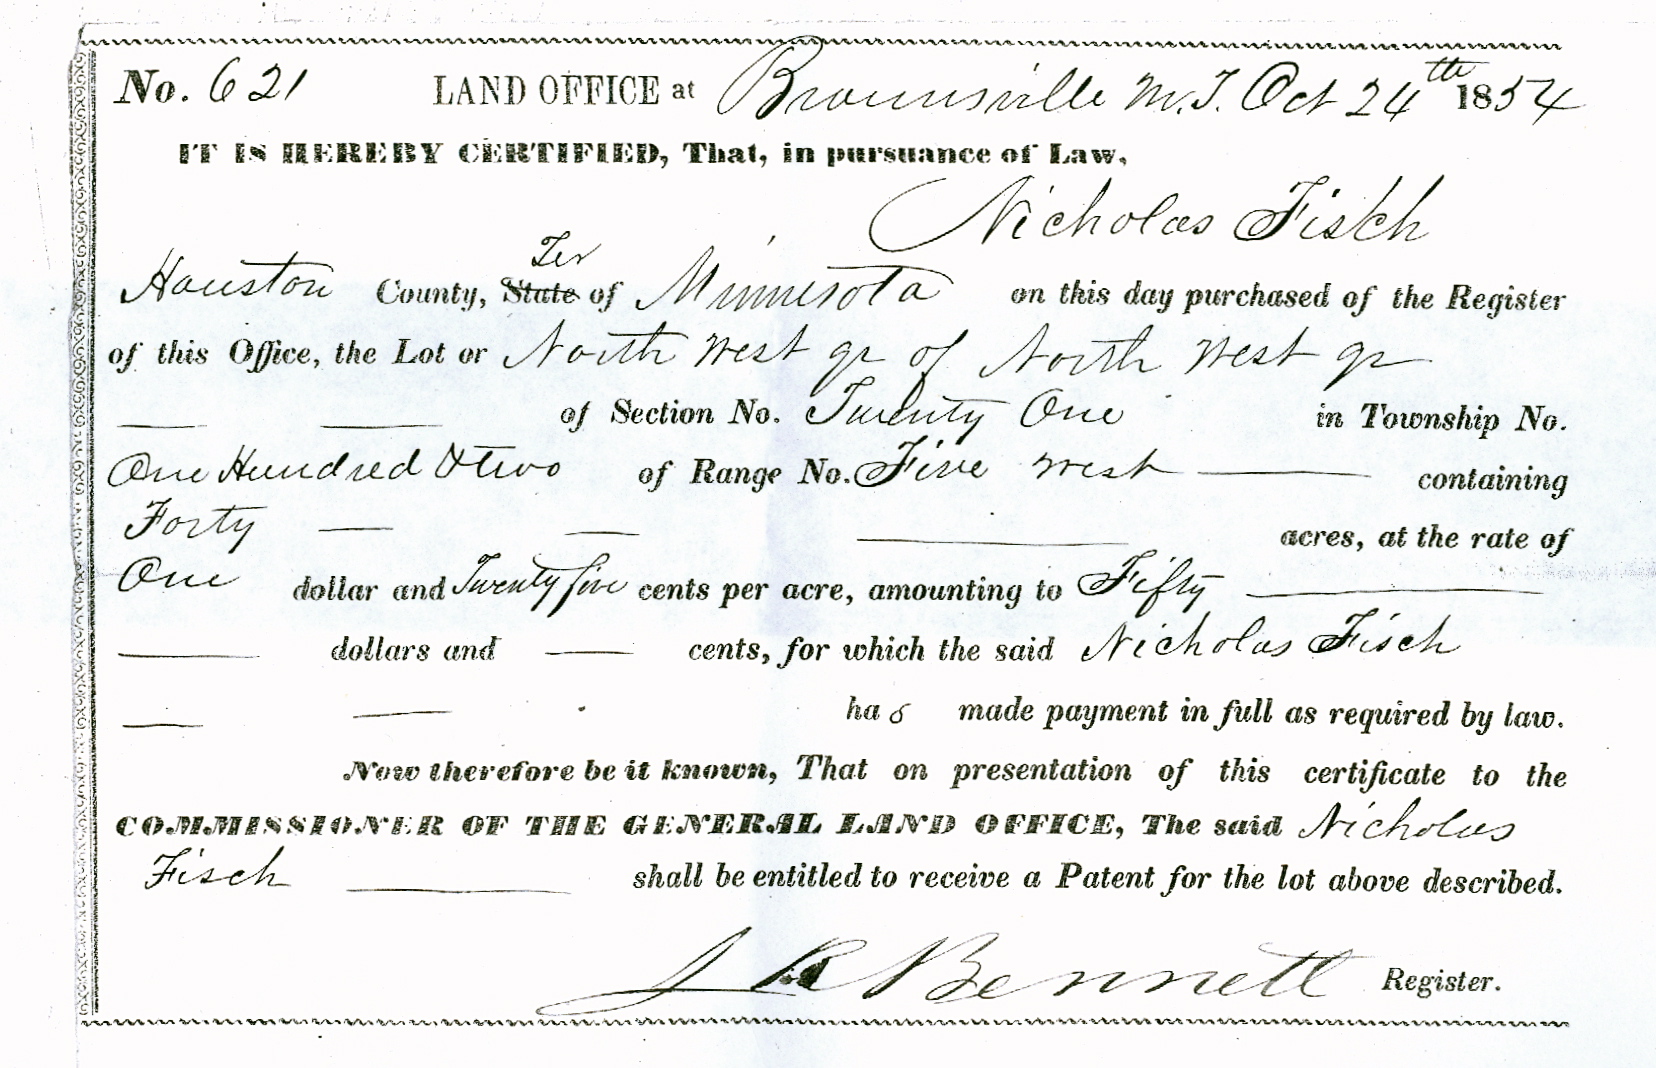 No. 621 LAND OFFICE at Brownsville M.T. Oct 24th 1854
IT IS HEREBY CERTIFIED, That, in pursuance of Law,
Nicholas Fisch
Ter
Houston County, State of Minnesota on this day purchased of the Register
of this Office, the Lot or North West qr of North West qr
of Section No. Twenty One in Township No.
One Hundred & two of Range No. Five West containing
Forty acres, at the rate of
One dollar and Twenty five cents per acre, amounting to Fifty
dollars and cents, for which the said Nicholas Fisch
has made payment in full as required by law.
Now therefore be it known, That on presentation of this certificate to the
COMMISSIONER OF THE GENERAL LAND OFFICE, The said Nicholas
Fisch shall be entitled to receive a Patent for the lot above described.
J R Bennett Register.